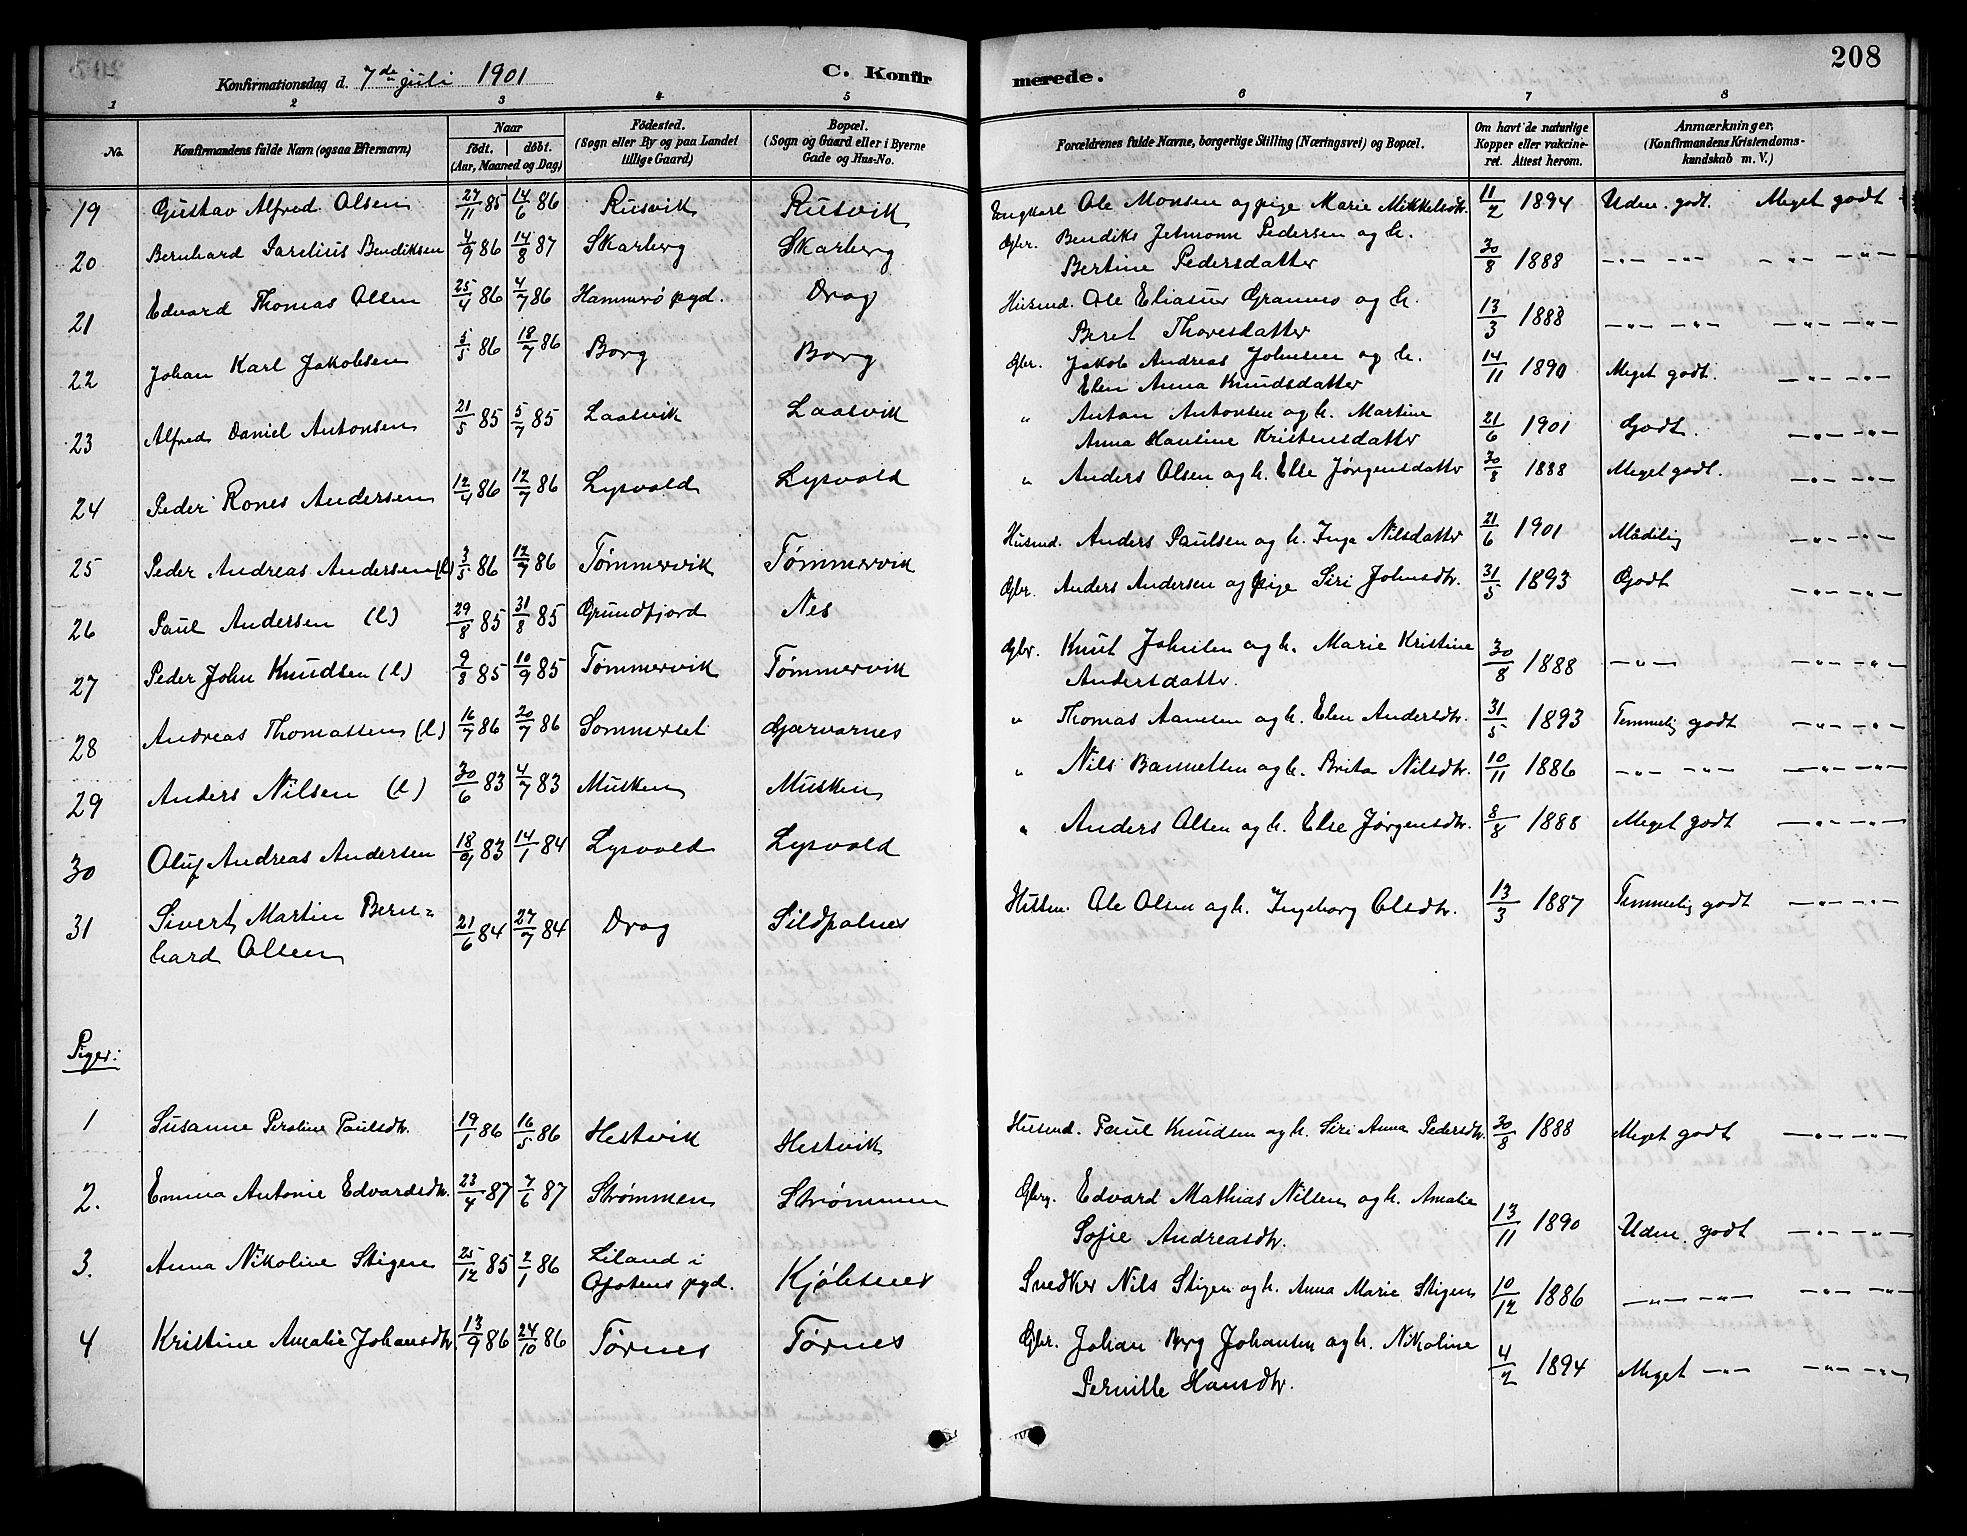 208
Konfirmationsdag d. 7de juli 1901
C. Konfirmerede.
1 2 3 4 5 6 7 8
No. Konfirmandens fulde Navn (ogsaa Efternavn) Naar født. døbt. (Aar, Maaned og Dag) Fødested. (Sogn eller By og paa Landet tillige Gaard) Bopæl. (Sogn og Gaard eller i Byerne Gade og Hus-No. Forældrenes fulde Navne, borgerlige Stilling (Næringsvei) og Bopæl. Om havt de naturlige Kopper eller vakcineret. Attest herom. Anmærkninger. (Konfirmandens Kristendomskundskab m. V.)
19 Gustav Alfred Olsen 27/11 85 14/6 86 Rusvik Rusvik Ungkarl Ole Monsen og pige Marie Mikkelsdtr. 11/2 1894 Udm. godt. Meget godt
20 Bernhard Sarelius Bendiksen 4/9 86 14/8 87 Skarberg Skarberg Gbr. Bendiks Jetmonn Pedersen og h.
Bertine Pedersdatter 30/8 1888 —"— —"— —"— —"—
21 Edvard Thomas Olsen 25/4 86 4/7 86 Hammerø pgd. Drag Husmd. Ole Eliasen Grannes og h.
Beret Thoresdatter 13/3 1888 —"— —"— —"— —"—
22 Johan Karl Jakobsen 3/5 86 18/7 86 Borg Borg Gbr. Jakob Andreas Johnsen og h.
Elen Anna Knudsdatter 14/11 1890 Meget godt. —"— —"—
23 Alfred Daniel Antonsen 21/5 85 5/7 85 Laasvik Laasvik " Anton Antonsen og h. Martine
Anna Hansine Kristensdatter 21/6 1901 Godt. —"— —"—
24 Peder Rones Andersen 12/4 86 12/7 86 Lysvold Lysvold " Anders Olsen og h. Else Jørgensdatter 30/8 1888 Meget godt. —"— —"—
25 Peder Andreas Andersen (l) 3/5 86 12/7 86 Tømmervik Tømmervik Husmd. Anders Paulsen og h. Inga Nilsdatter 21/6 1901 Mådelig —"— —"—
26 Paul Andersen (l) 29/8 85 31/8 85 Grundfjord Nes Gbr. Anders Andersen og pige Siri Johnsdtr. 31/5 1893 Godt —"— —"—
27 Peder John Knudsen (l) 9/8 85 10/9 85 Tømmervik Tømmervik Gbr. Knut Johnsen og h. Marie Kristine
Andersdatter. 30/8 1888 —"— —"— —"—
28 Andreas Thomassen (l) 16/7 86 20/7 86 Sommerset Gjærvarnes " Thomas Aansen og h. Elen Andersdtr. 31/5 1893 Temmelig godt —"— —"—
29 Anders Nilsen (l) 30/6 83 4/7 83 Musken Musken " Nils Bannetsen og h. Brita Nilsdtr. 10/11 1886 —"— —"— —"— —"—
30 Oluf Andreas Andersen 18/9 83 14/1 84 Lysvold Lysvold " Anders Olsen og h. Else Jørgensdtr. 8/8 1888 Meget godt —"— —"—
31 Sivert Martin Bern=
hard Olsen 21/6 84 27/7 84 Drag Sildpolnes Husm. Ole Olsen og h. Ingeborg Olsdtr. 13/3 1887 Temmelig godt —"— —"—
Piger:
1 Susanne Peroline Paulsdtr. 19/1 86 16/5 86 Hestvik Hestvik Husmd. Paul Knudsen og h. Siri Anna Pedersdtr. 30/8 1888 Meget godt —"— —"—
2. Emma Antonie Edvardsdtr. 23/4 87 7/6 87 Strømmen Strømmen Gbrg. Edvard Mathias Nilsen og h. Amalie
Sofie Andreasdtr. 13/11 1890 Udm. godt —"— —"—
3. Anna Nikoline Stigen 25/12 85 2/1 86 Liland i
Ofotens pgd. Kjøbsnes Snedker Nils Stigen og h. Anna Marie Stigen 10/12 1886 —"— —"— —"— —"—
4 Kristine Amalie Johansdtr. 13/9 86 24/10 86 Tørnes Tørnes Gbr. Johan Berg Johansen og h. Nikoline
Pernille Hansdtr. 4/2 1894 Meget —"— —"— —"—